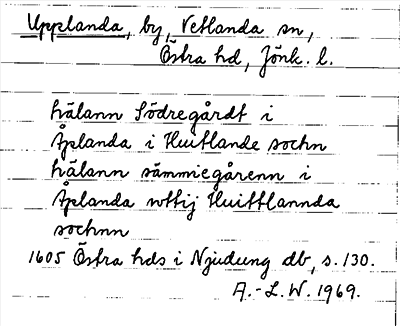 Upplanda, by, Vetlanda sn,
Östra hd, Jönk. l.
hälann Södregårdt i
Åplanda i Huitlande sochn
hälann sämmiegårenn i
Åplanda wttij Huittlannda
sochnn
1605 Östra hds i Njudung db, s. 130.
A.-L. W. 1969.